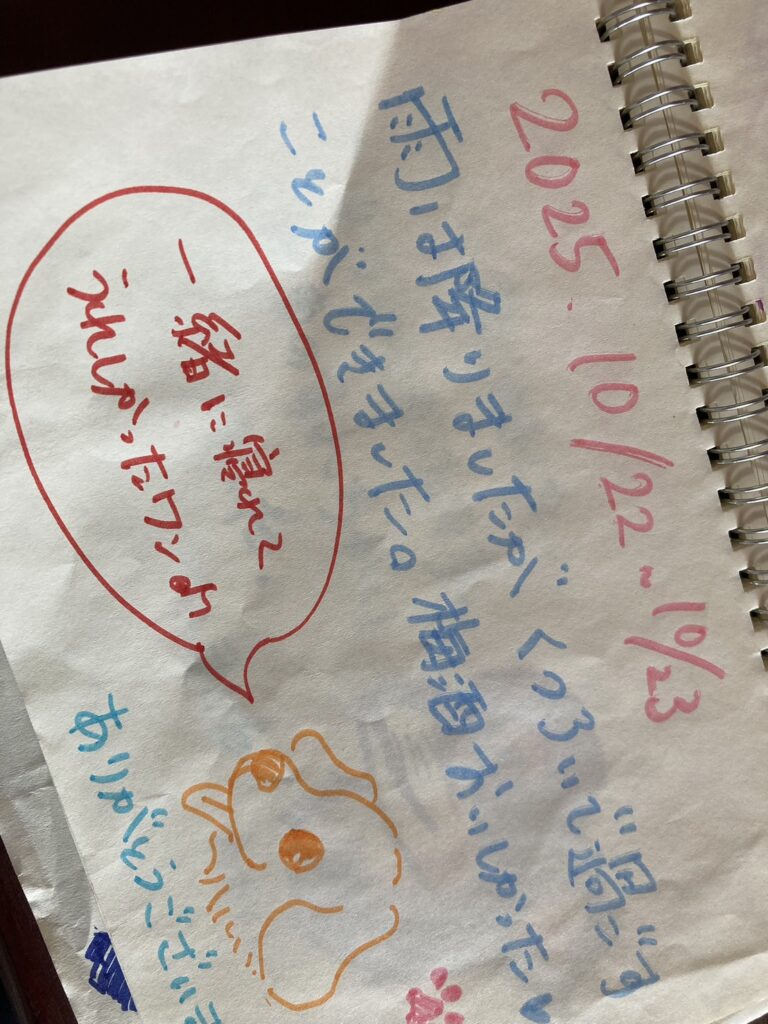 2025.10/22~10/23
雨は降りましたがくつろいで過ごす
ことができました。梅酒おいしかったし
一緒に寝れて
うれしかったワンよ
へへへ
ありがとうございま